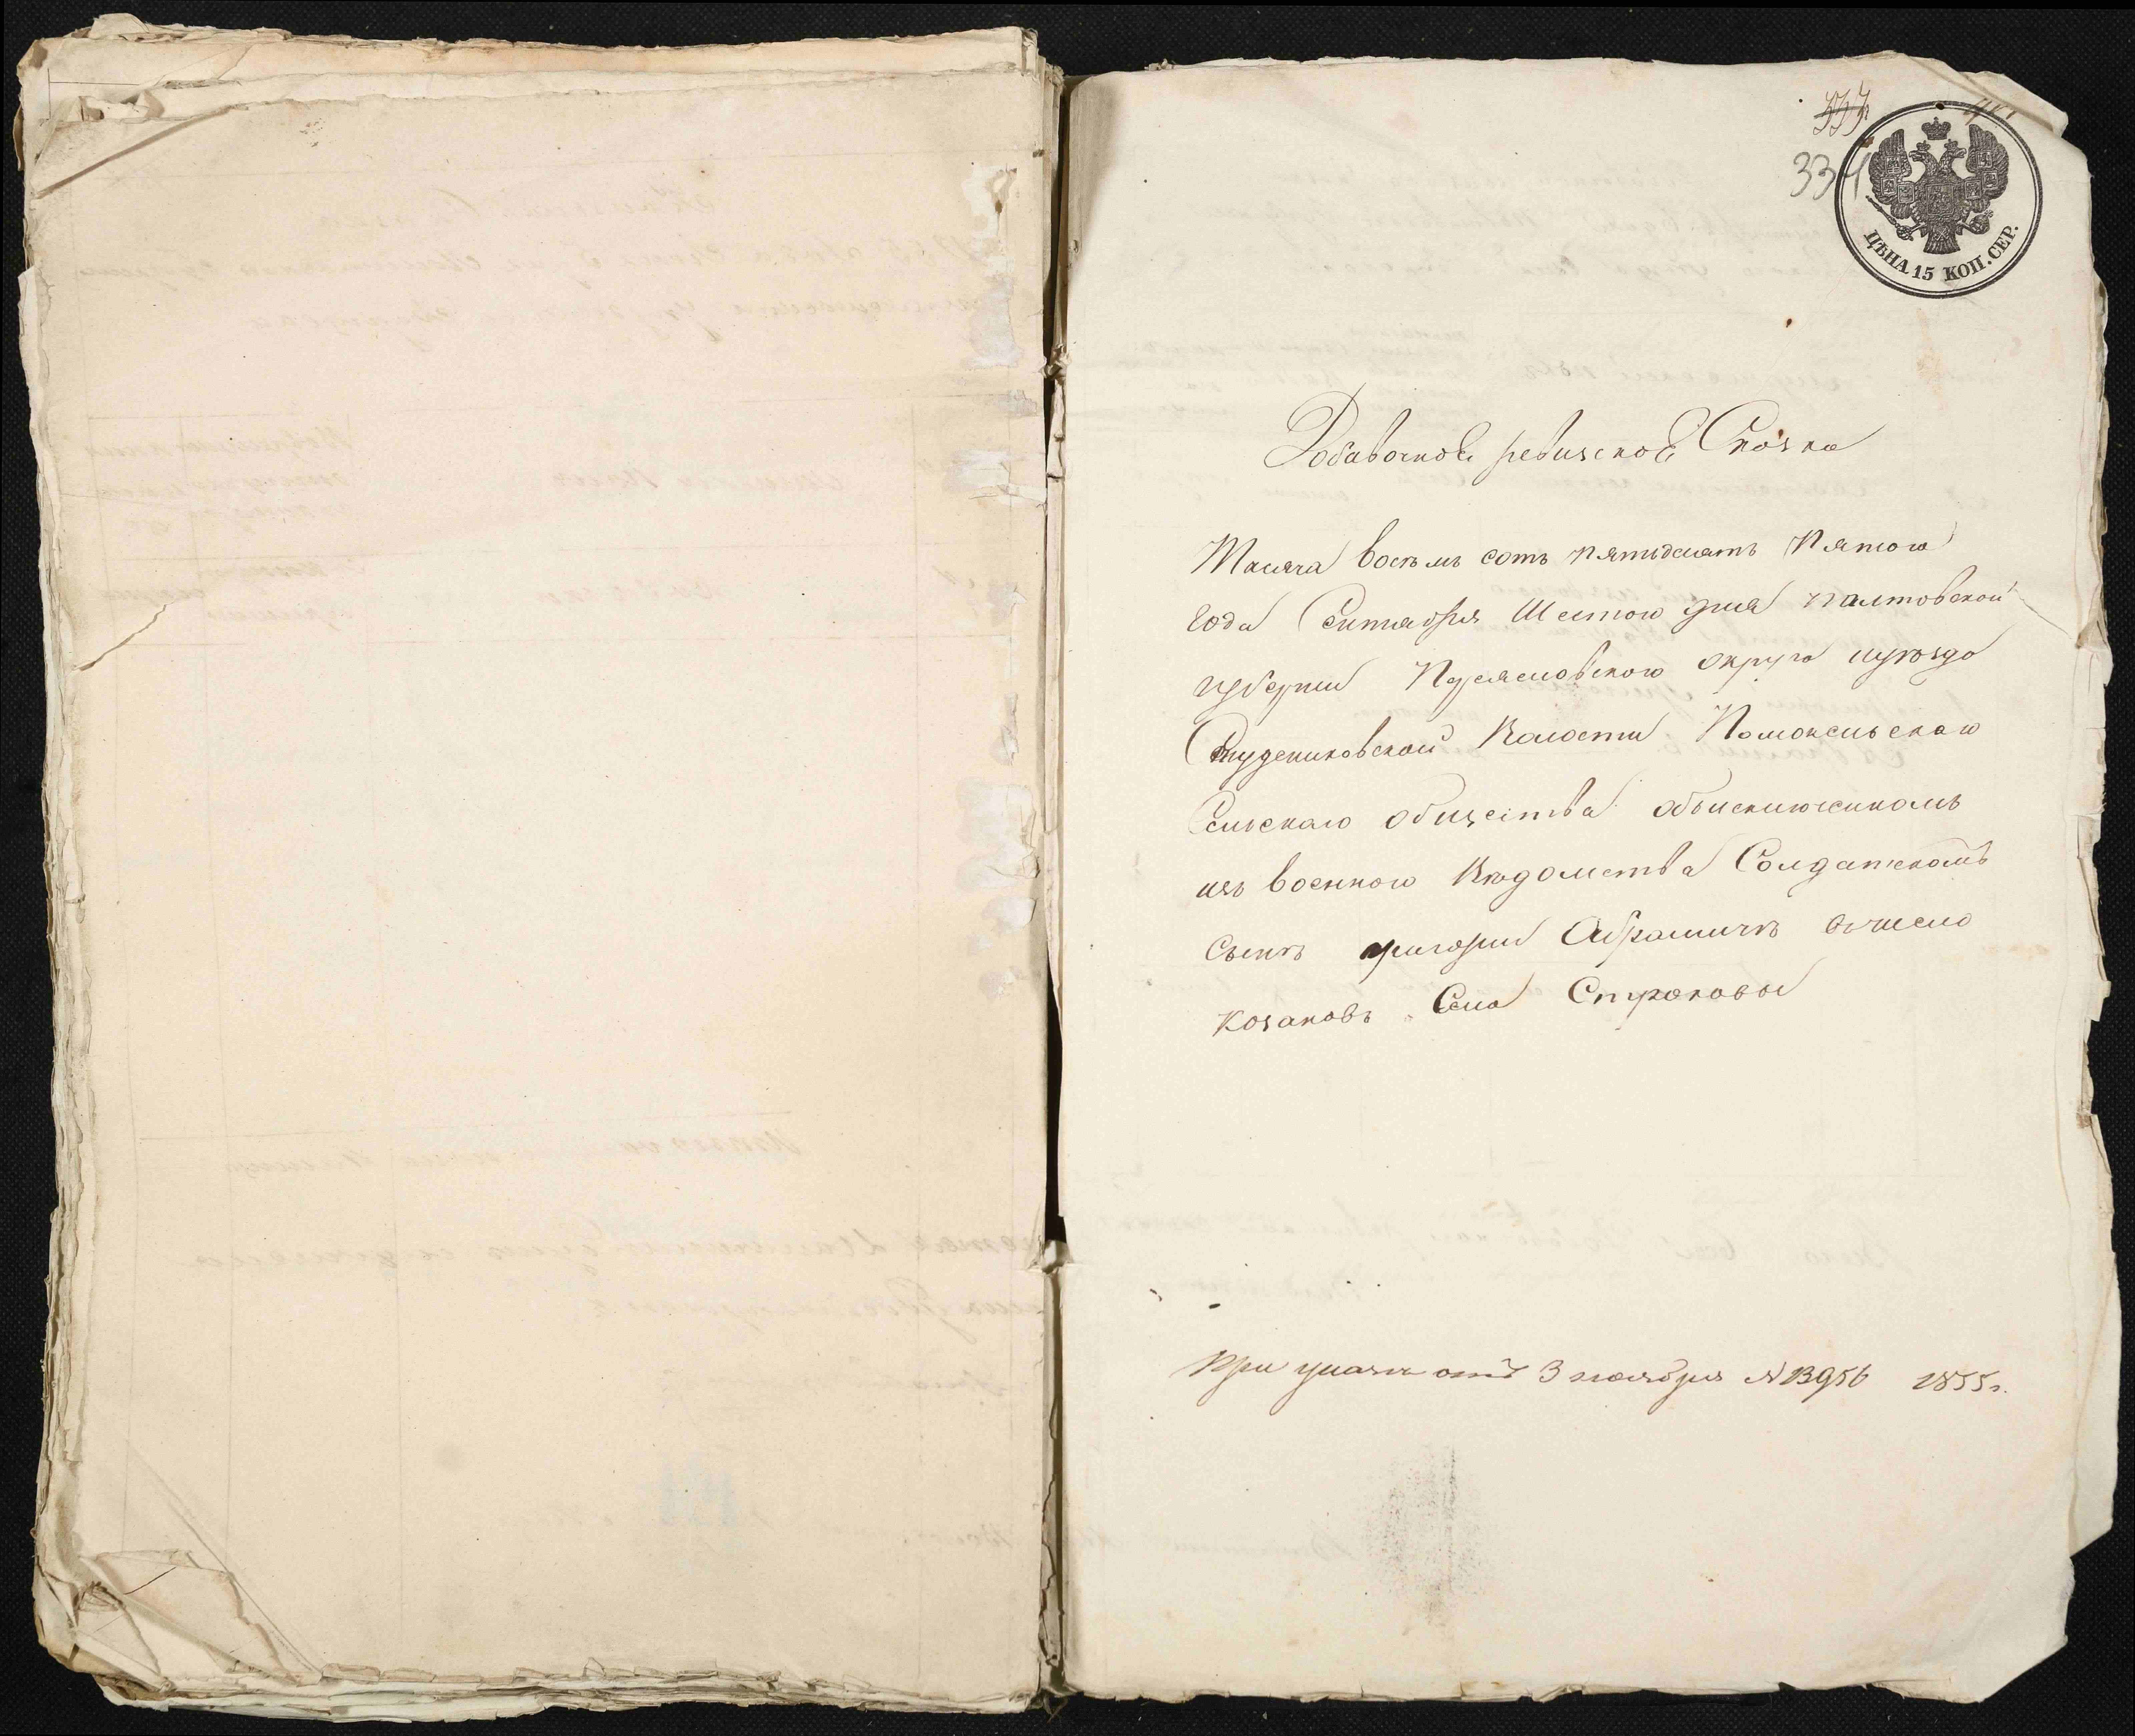 334
ЦѢНА 15 КОП. СЕР.
Добавочноѣ ревизскоѣ Сказка
Тысяча восѣмь сотъ пятьдесятъ Пятого
года Сентября Шестого дня палтовской
губернии Переясловского округа иуезда
Студениковской Волости Помоклѣскаго
Селѣскаго общества
изъ военного Вѣдомства Солдатскомъ
Сынѣ григории Абрамичѣ вчисло
козаковъ Села Строковы
При указѣ отъ 3 ноября № 13956 1855 г.